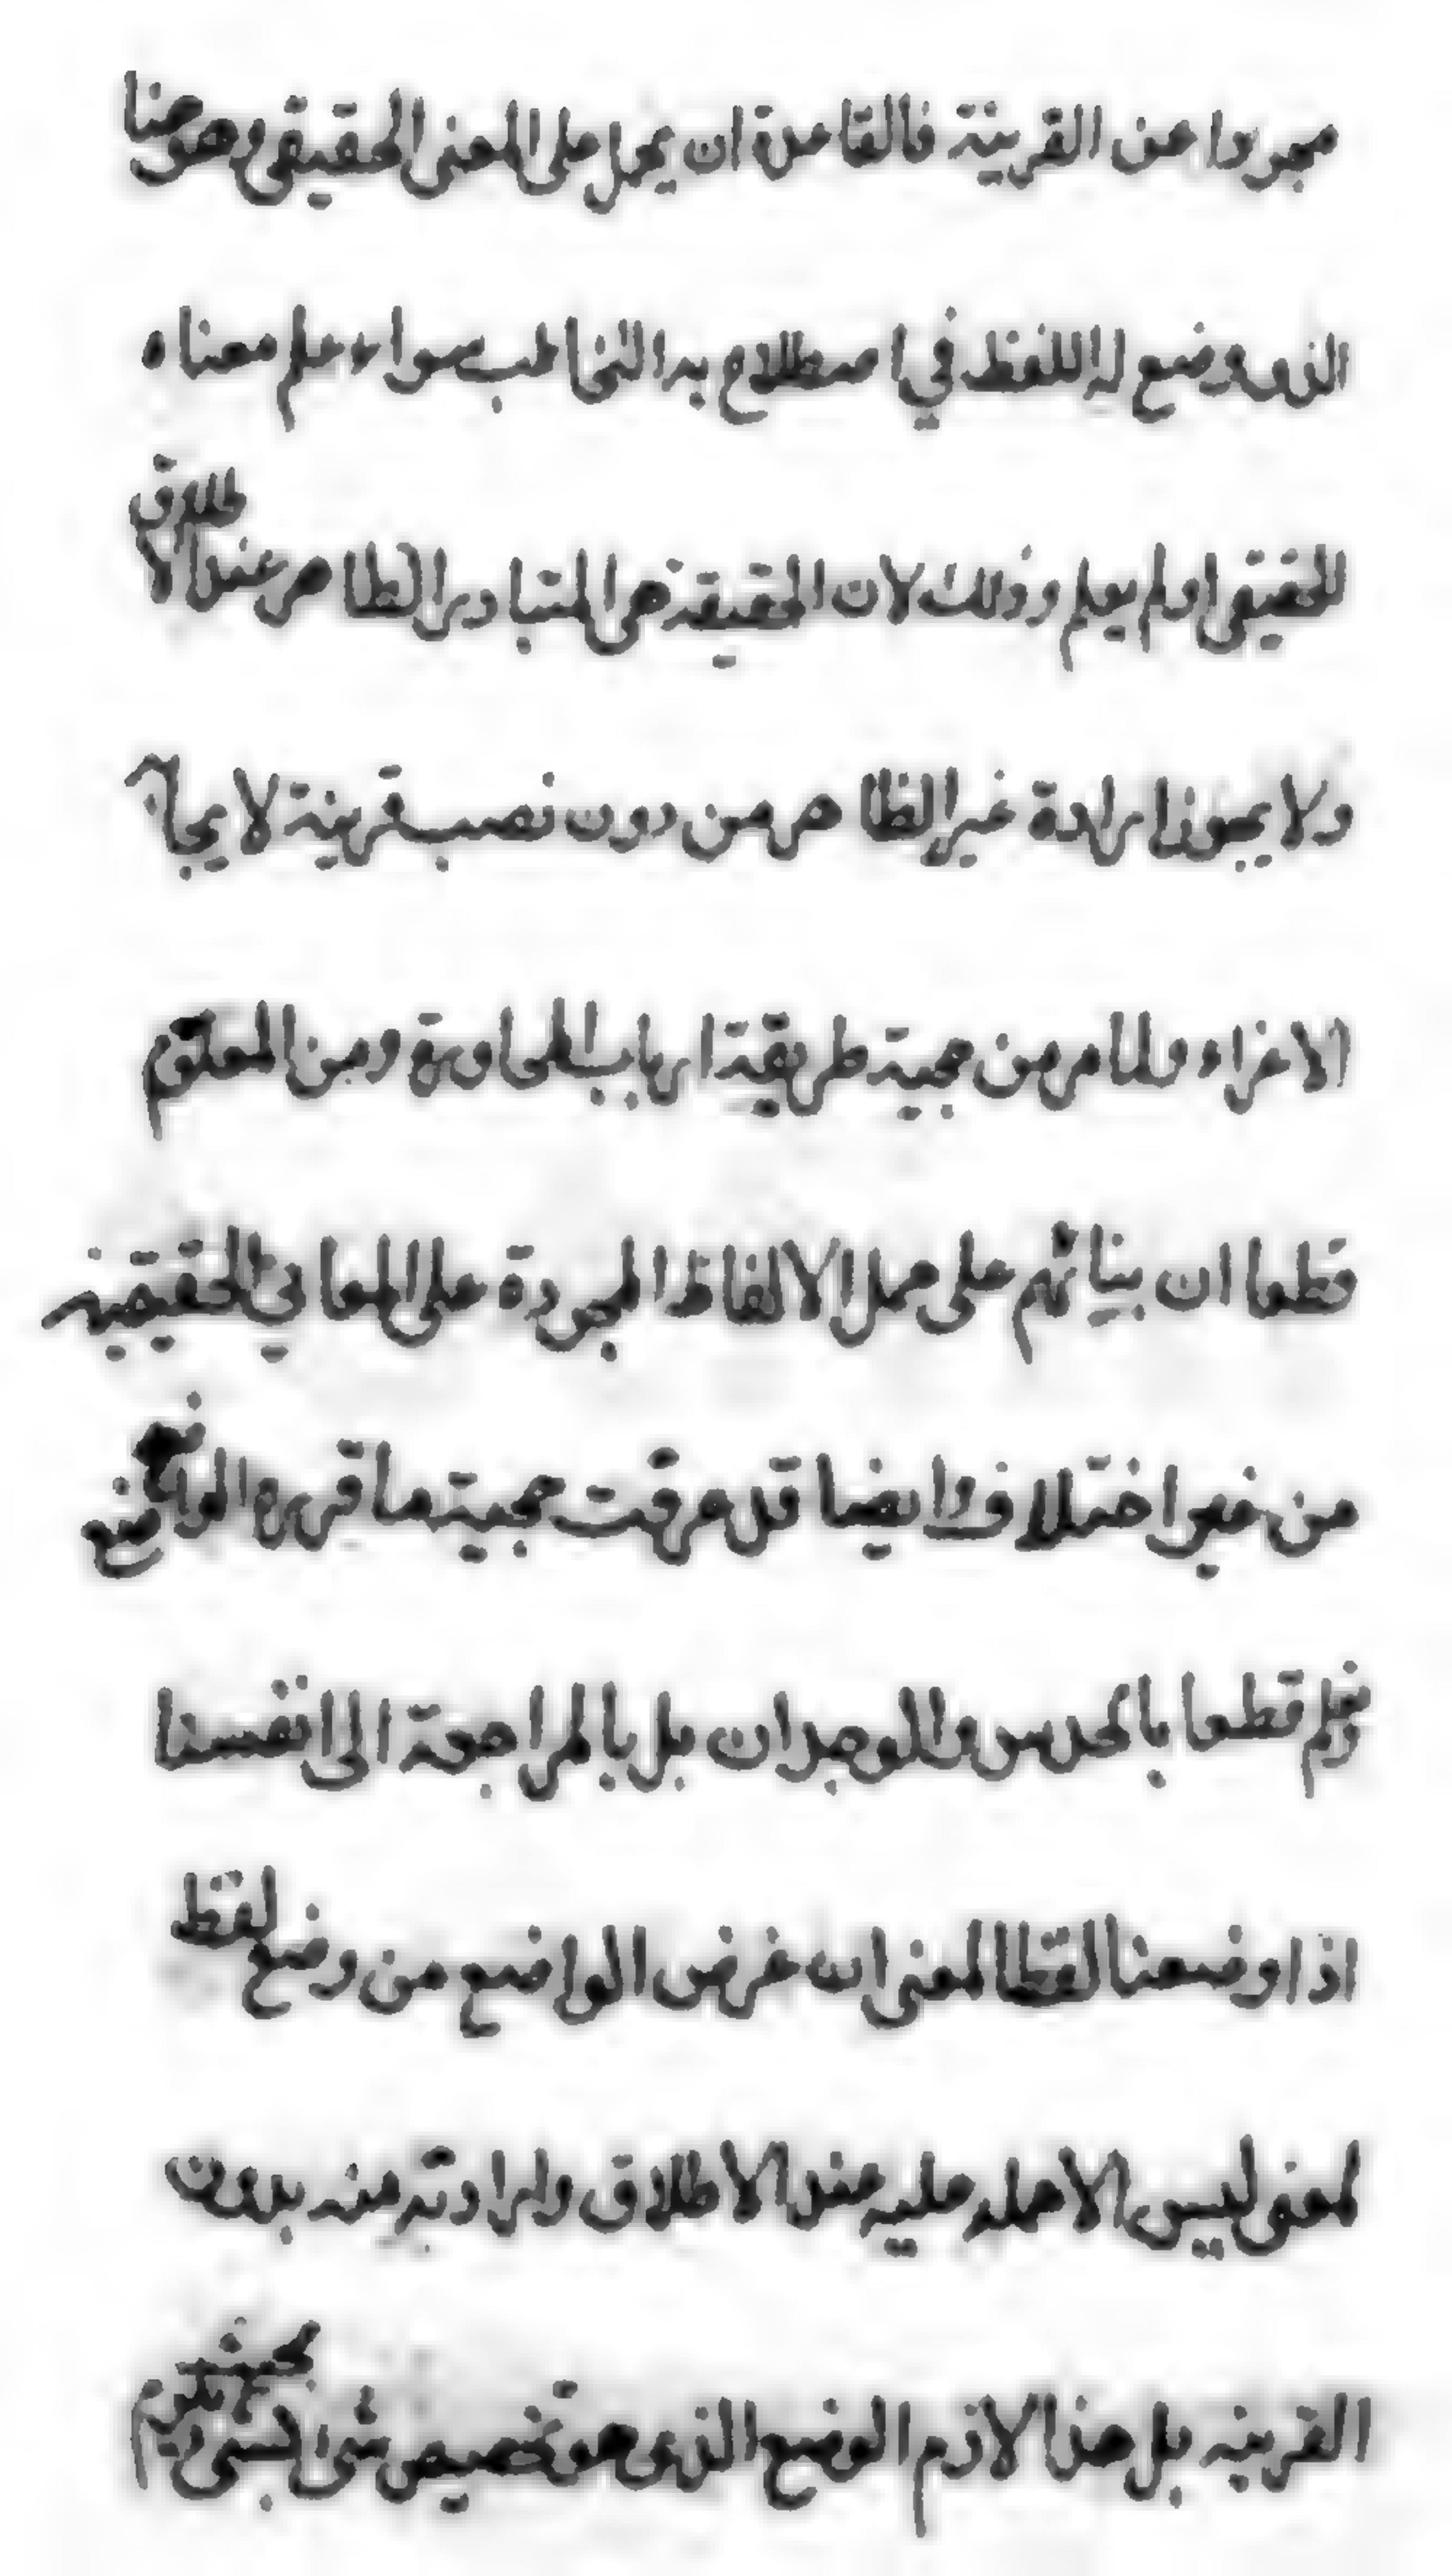 مجردا عن القرينة فالقاعدة ان يحمل على المعنى الحقيقى وهو هنا
الذى وضع له اللفظ في اصطلاح به التخاطب سواء علم معناه
الحقيقى او لم يعلم وذلك لان الحقيقة هى المتبادر الظاهر عند الاطلاق
ولا يجوز ارادة غير الظاهر من دون نصب قرينة لا يجابه
الاغراء ولما مر من حجية طريقة ارباب المحاورة ومن المعلوم
قطعا ان بنائهم على حمل الالفاظ المجردة على المعاني الحقيقية
من غير اختلاف وايضا قد عرفت حجية ما قرره الواضع
ونعلم قطعا بالحدس والوجدان بل بالمراجعة الى انفسنا
اذا وضعنا لفظا لمعنى ان غرض الواضع من وضع لفظ
لمعنى ليس الا حمله عليه عند الاطلاق وارادته منه بدون
القرينه بل هذا لازم الوضع الذى هو تخصيص شئ بشئ بحيث يلزم